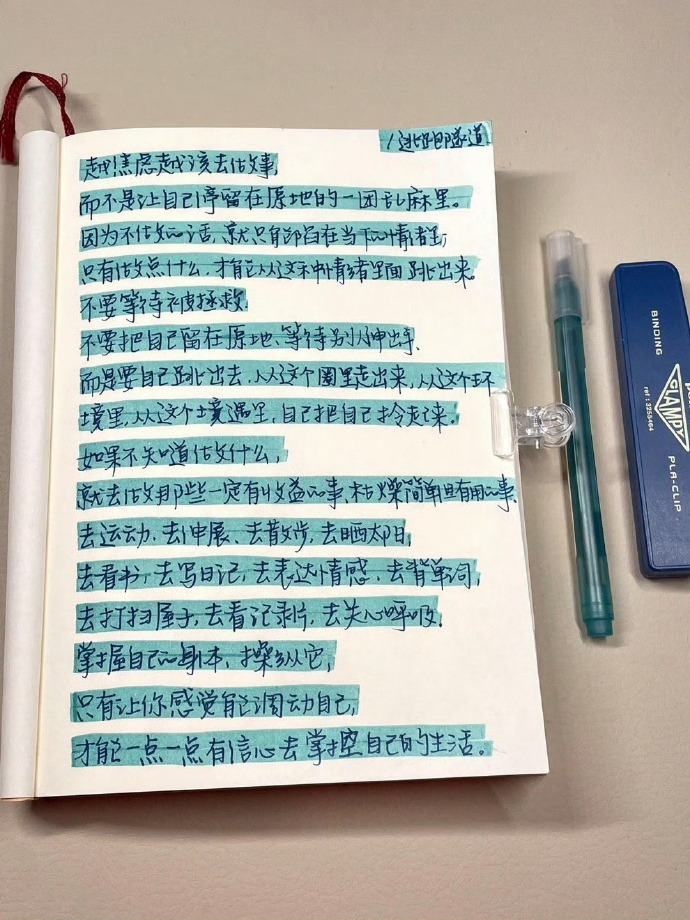 /逃出即隧道
越焦虑越该去做事,
而不是让自己停留在原地的一团乱麻里。
因为不做的话,就只有卸陷在当下的情绪里,
只有做点什么,才能从这种情绪里面跳出来。
不要等待被拯救.
不要把自己留在原地、等待别人伸出手.
而是要自己跳出去,从这个圈里走出来,从这个环
境里,从这个境遇里,自己把自己拎走了来。
如果不知道做什么,
就去做那些一定有收益的事,枯燥简单但有用的事.
去运动、去伸展、去散步,去晒太阳,
去看书,去写日记,去表达情感、去背单词,
去打扫屋子,去看记录片,去关心呼吸,
掌握自己的身体,操纵它,
只有让你感觉能调动自己,
才能一点一点有信心去掌控自己的生活。
BINDING
GLAMPY
ref: 3255464
PLA-CLIP